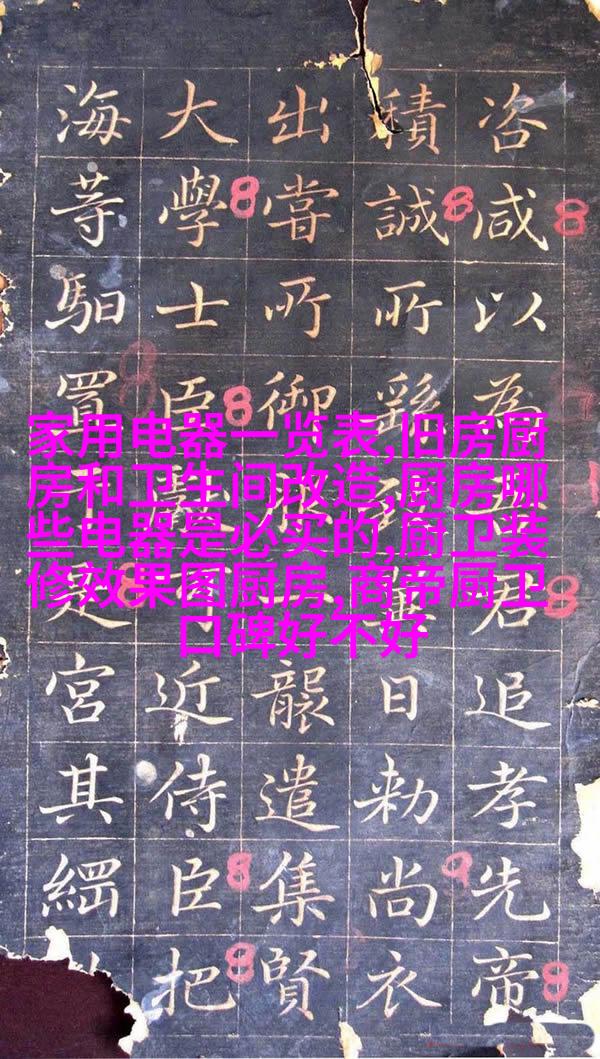 咨咸以為君追孝先帝
積誠所日勅尚衣
出嘗所御襲遣集賢
大學士臣可近侍臣把
海等馹置是宮其綱
家用电器一览表,旧房厨
房和卫生间改造,厨房哪
些电器是必买的,厨卫装
修效果图厨房,商帝厨卫
口碑好不好